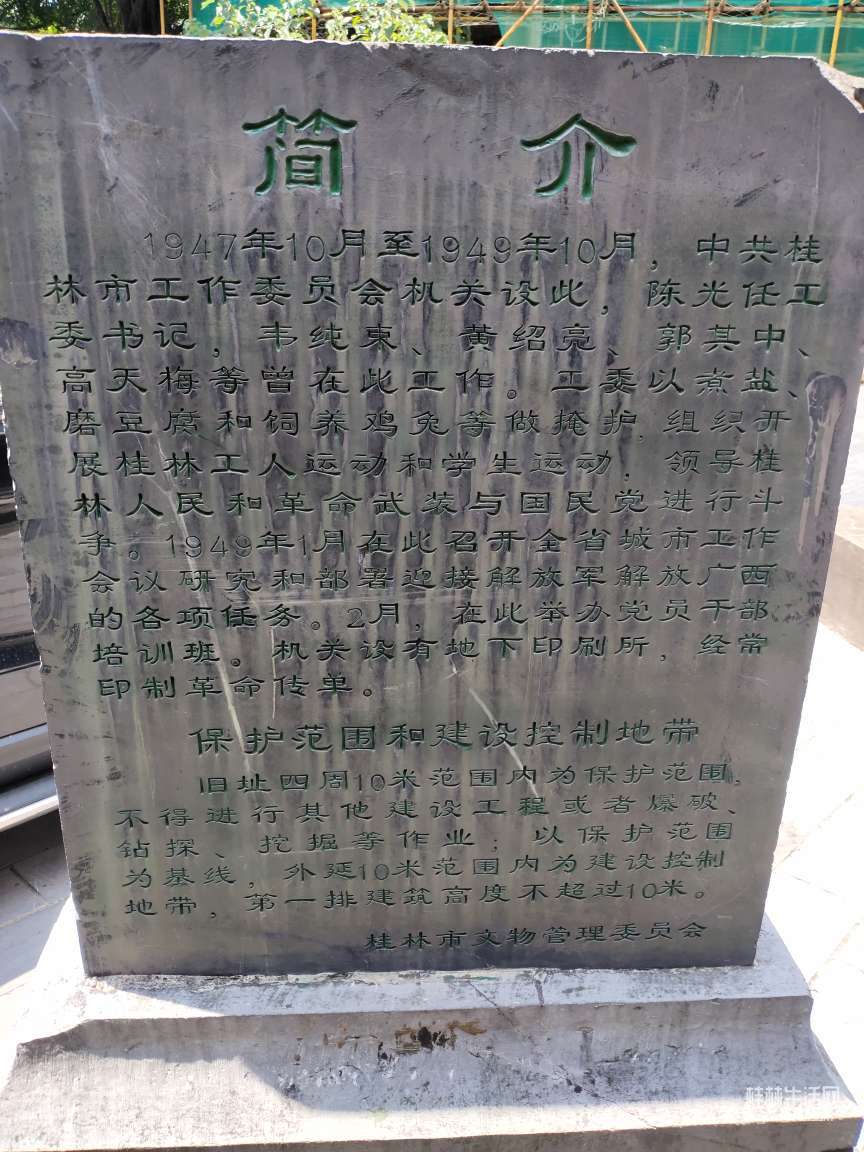 简介
1947年10月至1949年10月，中共桂
林市工作委员会机关设此，陈光任工
委书记，韦纯束、黄绍亮、郭其中、
高天梅等曾在此工作。工委以煮盐、
磨豆腐和饲养鸡兔等做掩护，组织开
展桂林工人运动和学生运动，领导桂
林人民和革命武装与国民党进行斗
争。1949年1月在此召开全省城市工作
会议研究和部署迎接解放军解放广西
的各项任务。2月，在此举办党员干部
培训班。机关设有地下印刷所，经常
印制革命传单。
保护范围和建设控制地带
旧址四周10米范围内为保护范围，
不得进行其他建设工程或者爆破、
钻探、挖掘等作业；以保护范围
为基线，外延10米范围内为建设控制
地带，第一排建筑高度不超过10米。
桂林市文物管理委员会
桂林生活网